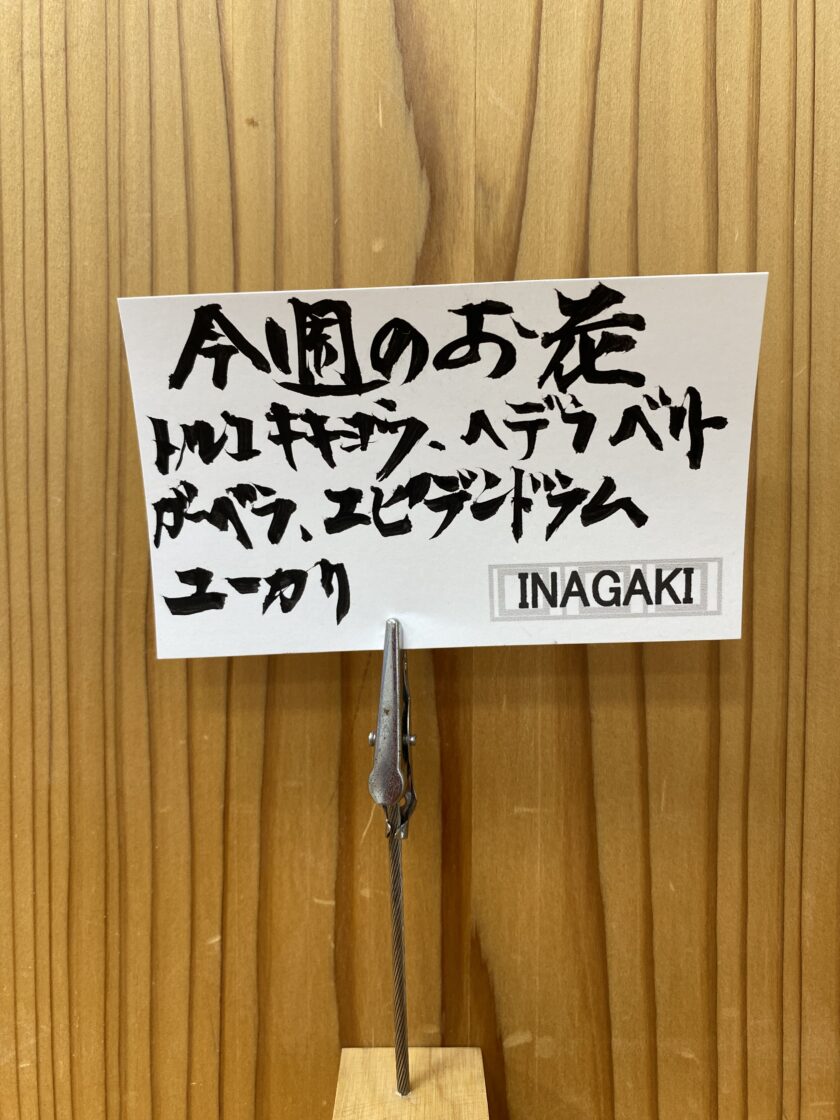 今週のお花
トルコキキョウ、ヘデラベリー
ガーベラ、エピデンドラム
ユーカリ
INAGAKI